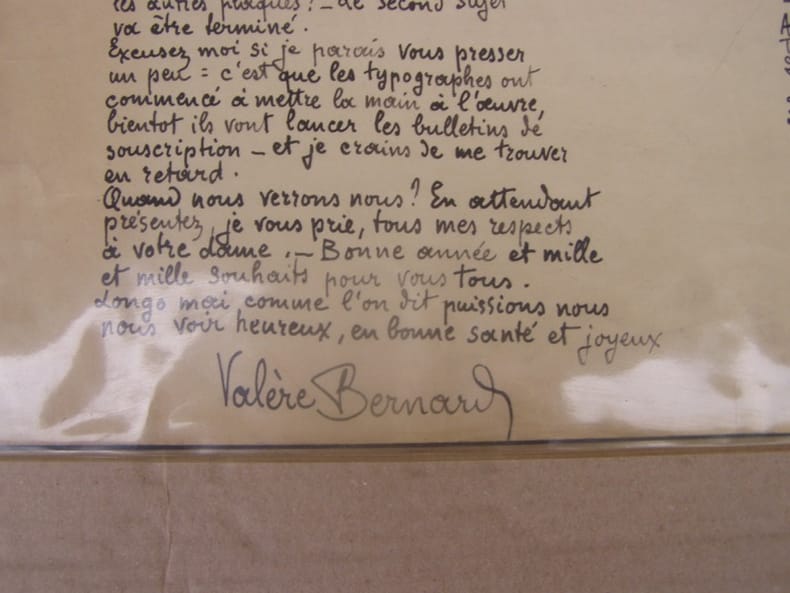 les autres plaques ? _ Le second sujet
va être terminé.
Excusez moi si je parais vous presser
un peu = c'est que les typographes ont
commencé à mettre la main à l'œuvre,
bientot ils vont lancer les bulletins de
souscription _ et je crains de me trouver
en retard.
Quand nous verrons nous ? En attendant
présentez, je vous prie, tous mes respects
à votre dame . _ Bonne année et mille
et mille souhaits pour vous tous.
Longo mai comme l'on dit puissions nous
nous voir heureux, en bonne santé et joyeux
Valère Bernard